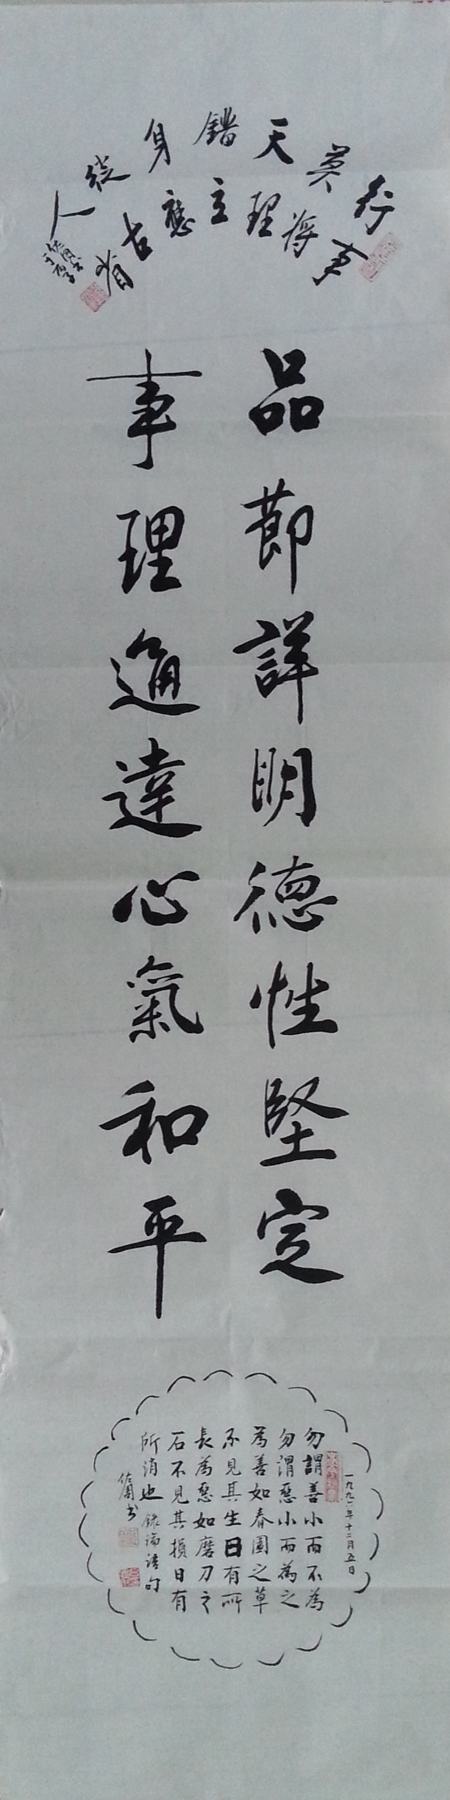 行事
莫將
天理
錯立
身應
從古
人
品節詳明德性堅定
事理通達心氣和平
一九九一年十二月五日
勿謂善小而不為
勿謂惡小而為之
為善如春園之草
不見其生日有所
長為惡如磨刀之
石不見其損日有
所消也 錄論語句